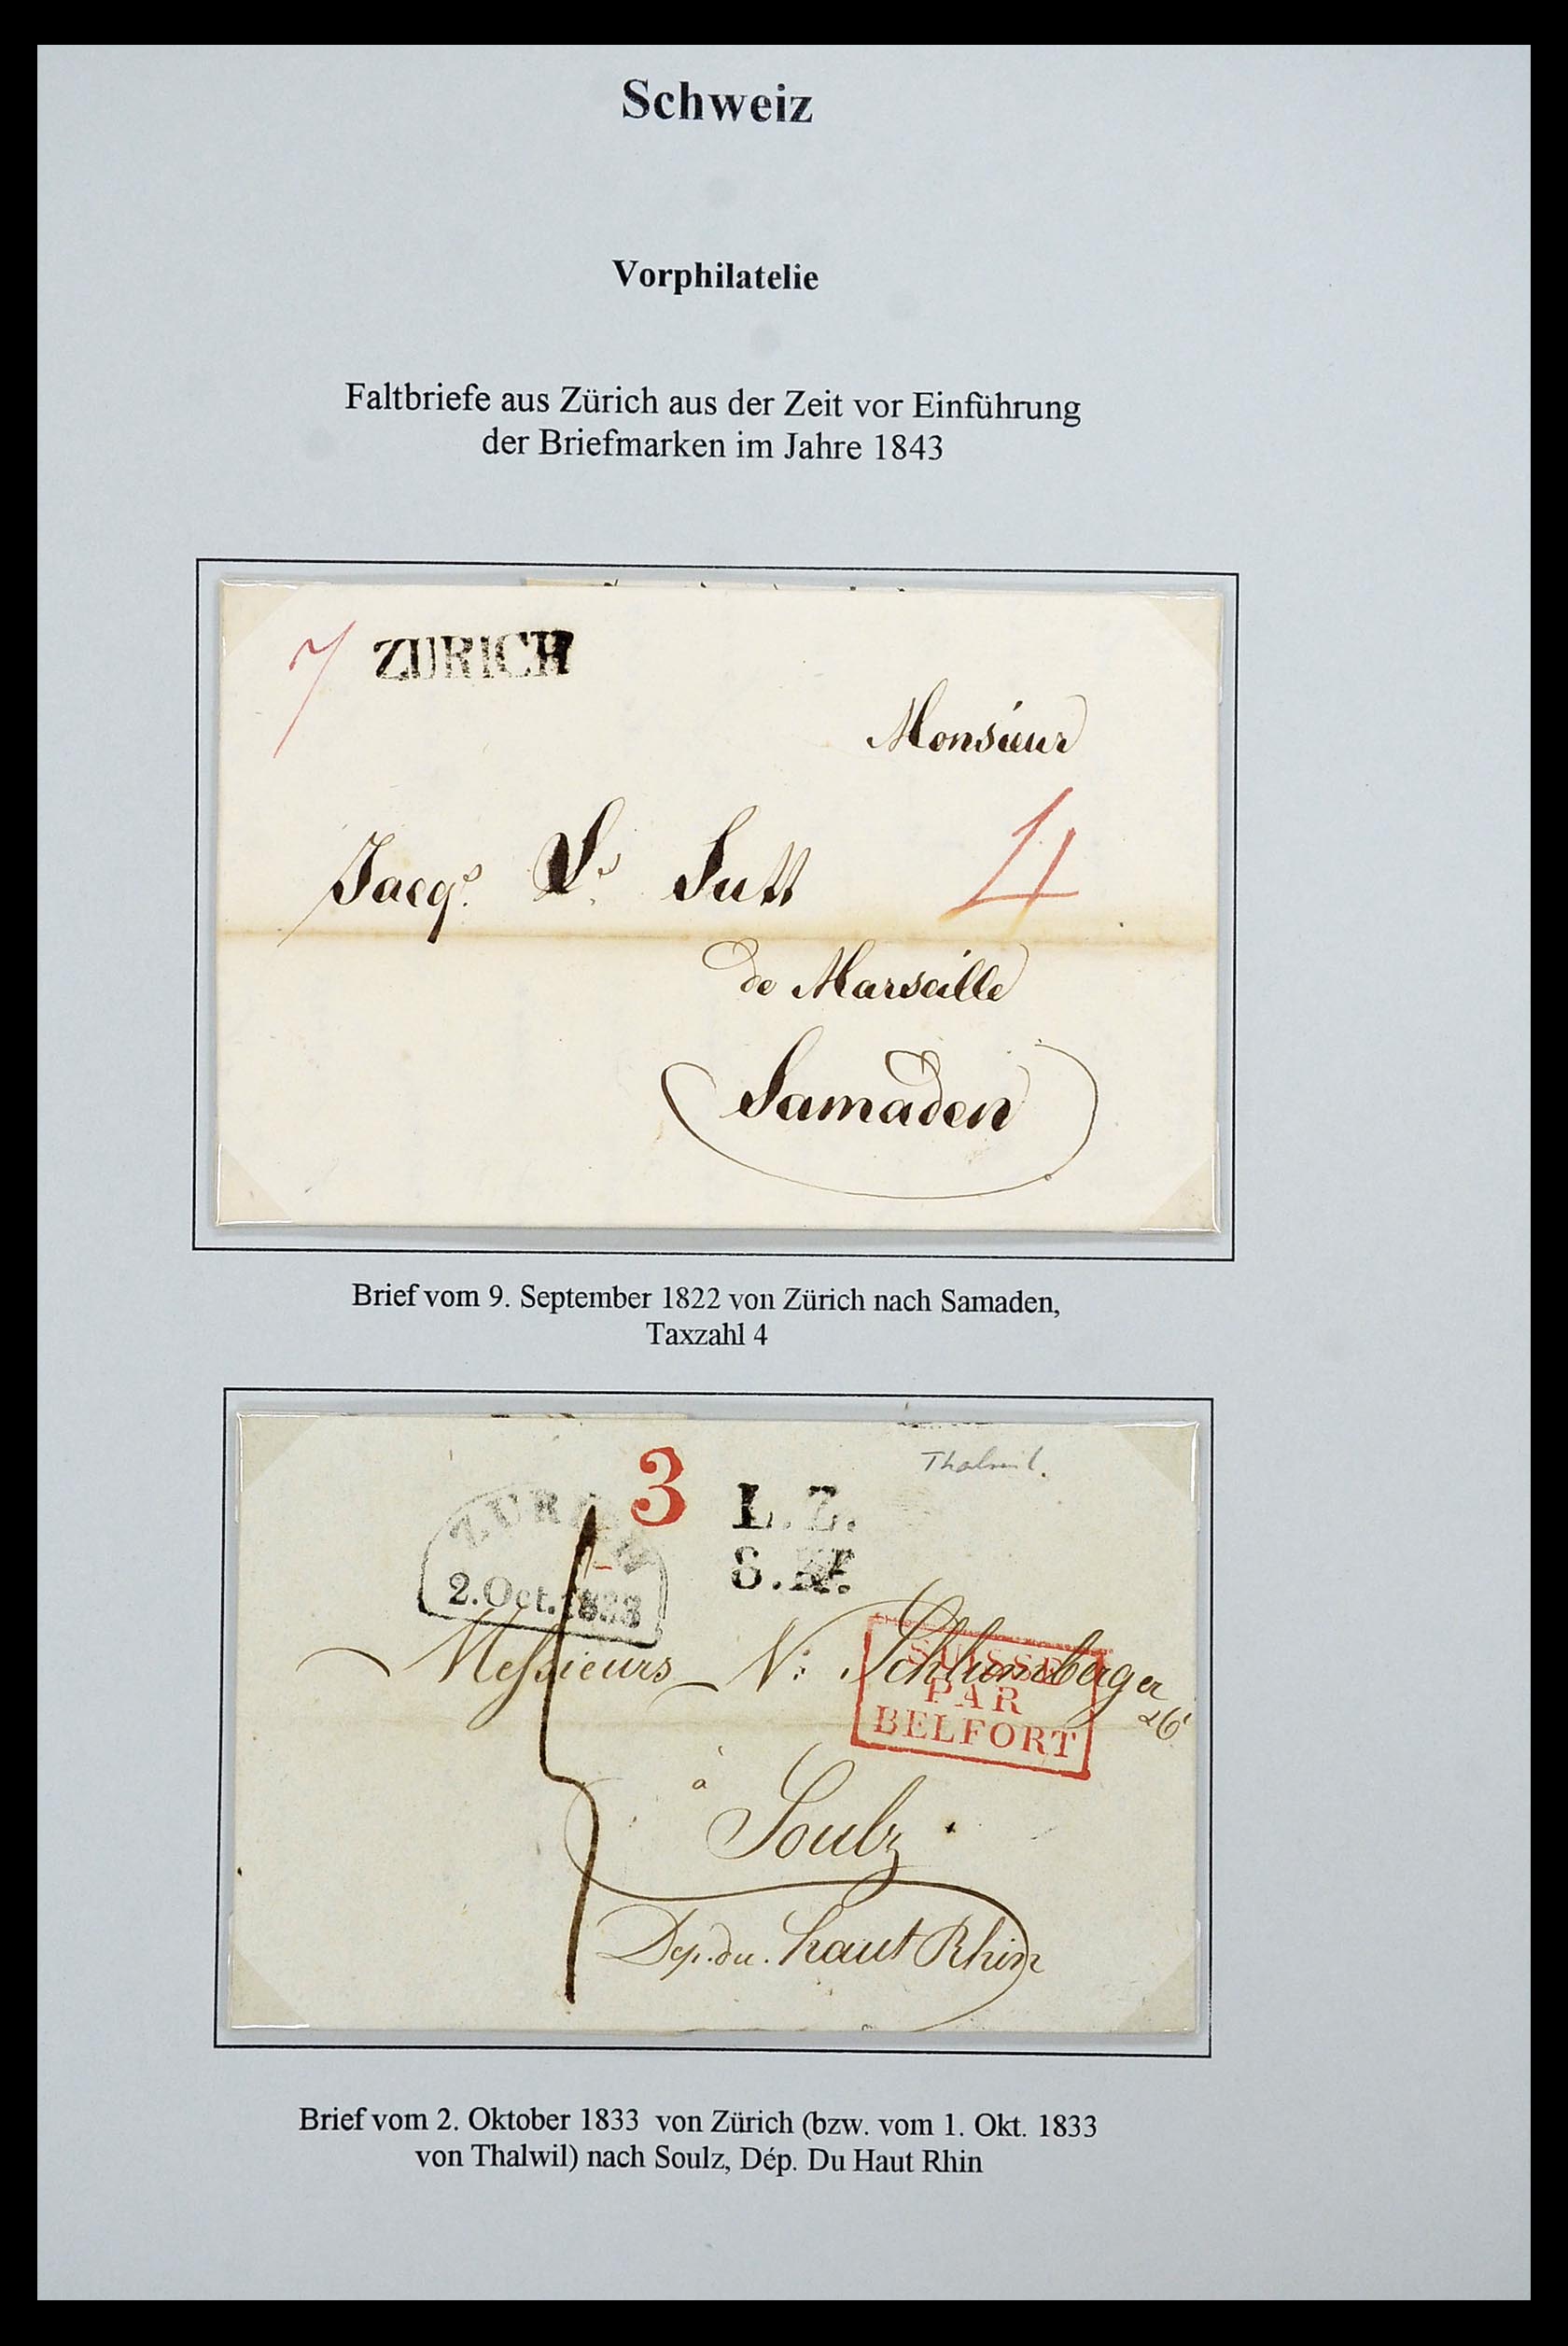 Schweiz
Vorphilatelie
Faltbriefe aus Zürich aus der Zeit vor Einführung
der Briefmarken im Jahre 1843
7 ZURICH
Monsieur
Jacqs. Ls. Sutt 4
de Marseille
Samaden
Brief vom 9. September 1822 von Zürich nach Samaden,
Taxzahl 4
Thalwil.
3 L.Z.
ZURICH
S.R.
2.Oct.1833
Messieurs N: Schlumberger
SUISSE
PAR
BELFORT
à
Soulz
Dep. du. haut Rhin
Brief vom 2. Oktober 1833 von Zürich (bzw. vom 1. Okt. 1833
von Thalwil) nach Soulz, Dép. Du Haut Rhin